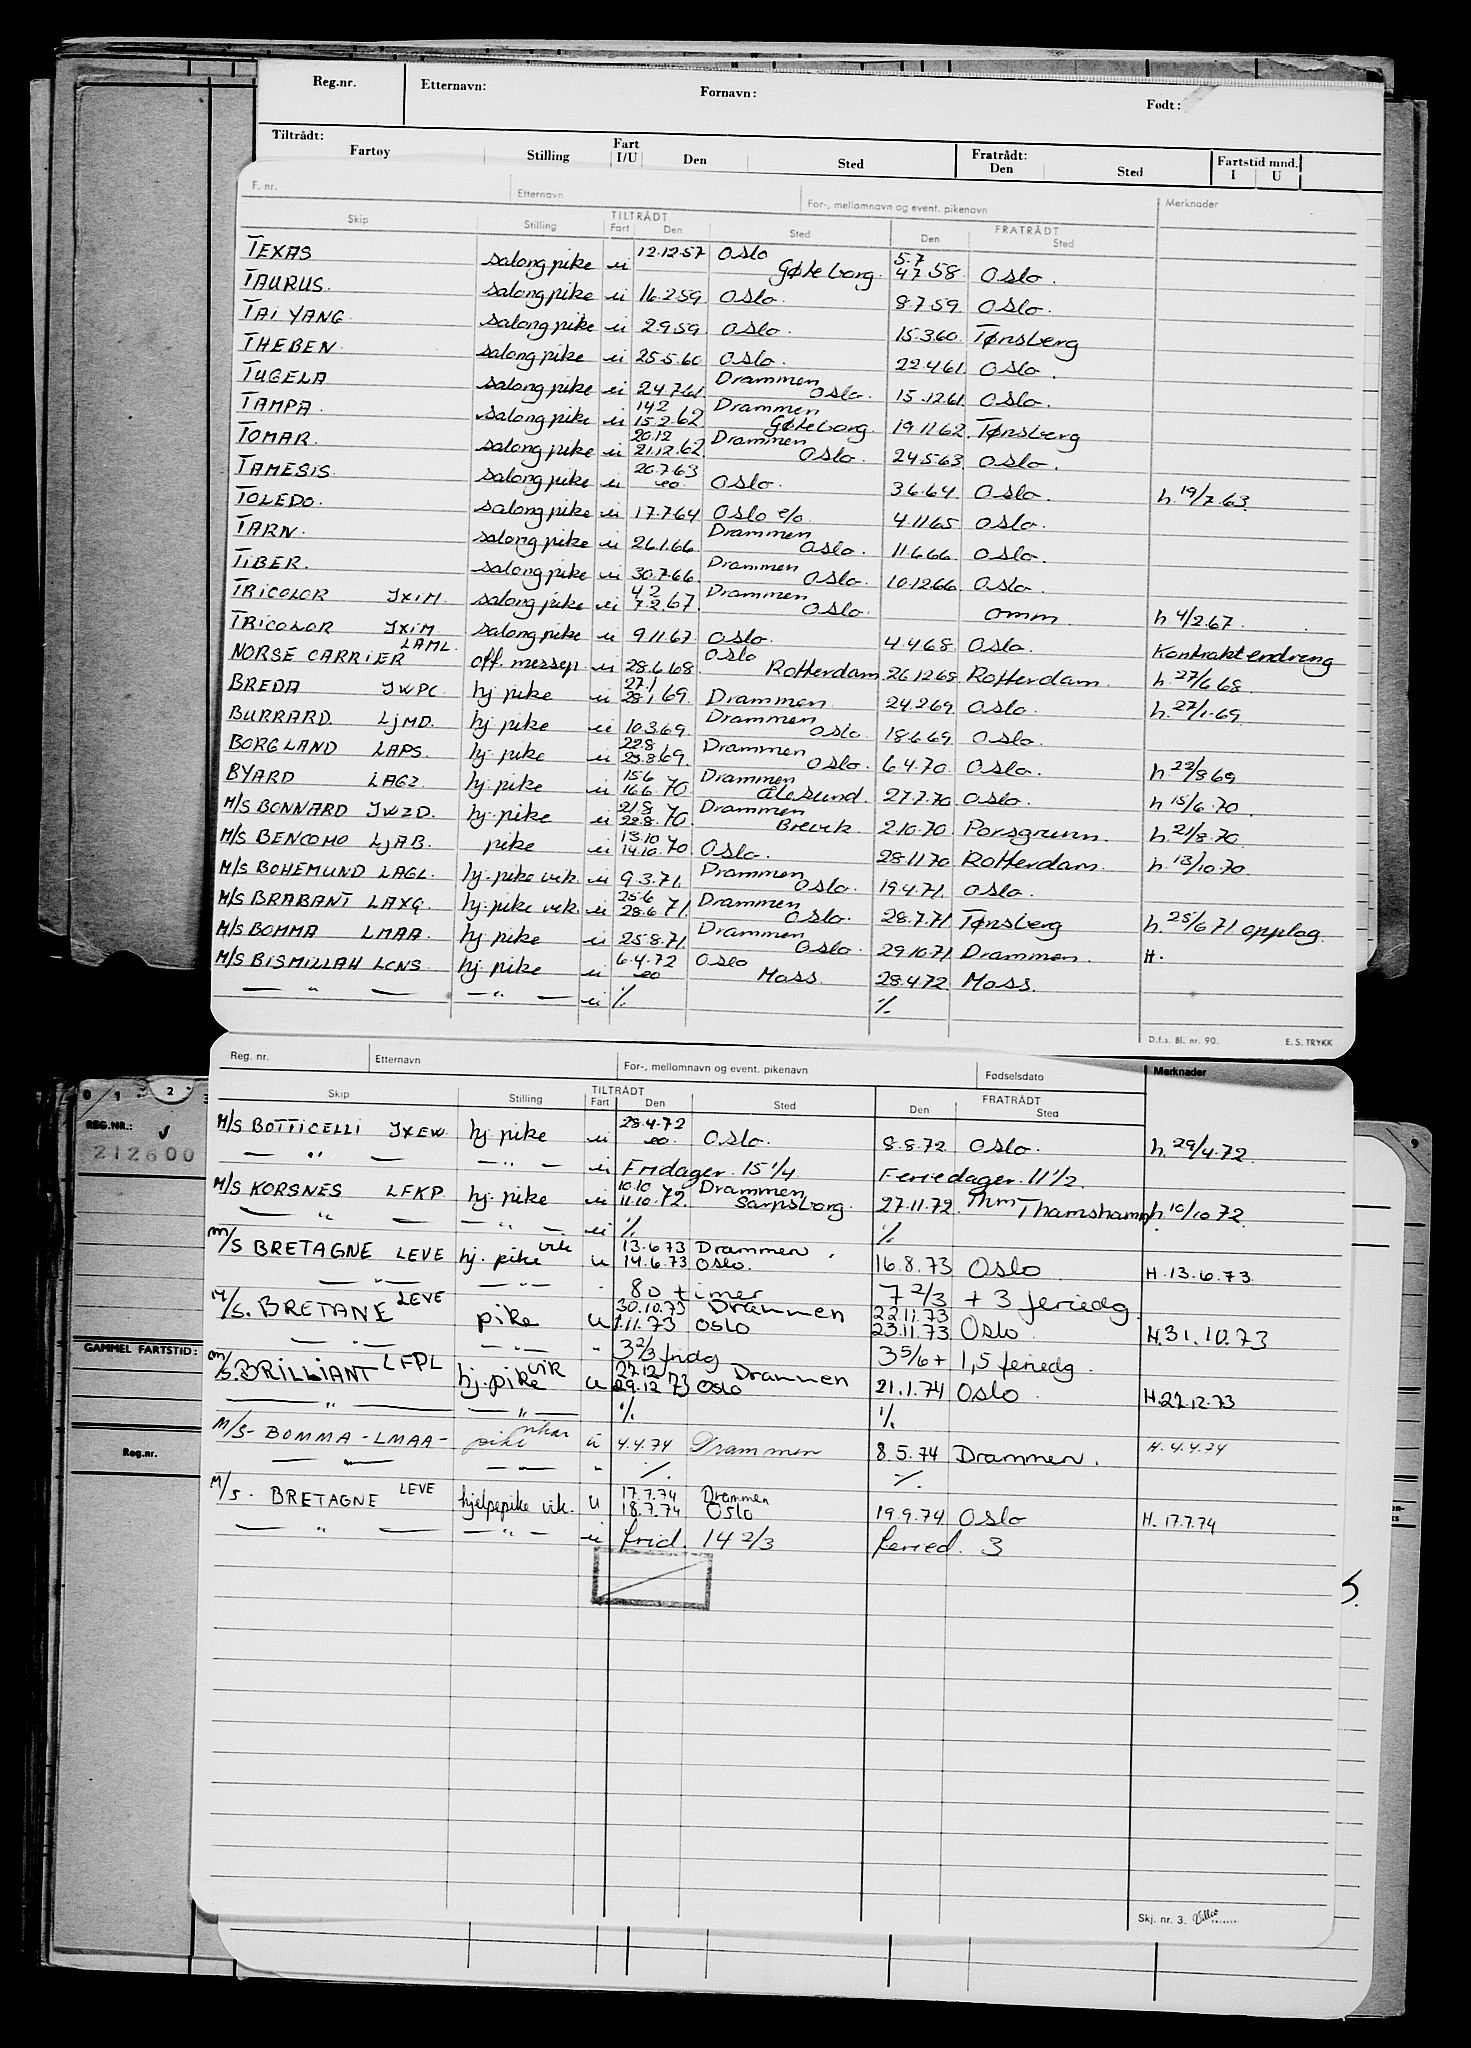 Reg.nr. Etternavn: Fornavn: Født:
Tiltrådt: Fratrådt: Fartstid mnd.
Fartøy Stilling Fart I/U Den Sted Den Sted I U
F. nr. Etternavn For-, mellomnavn og event. pikenavn Merknader
Skip Stilling TILTRÅDT Fart Den Sted FRATRÅDT Den Sted
TEXAS salongpike u 12.12.57 Oslo Gøteborg 5.7 4.7.58 Oslo.
TAURUS. salongpike u 16.2.59 Oslo. 8.7.59 Oslo.
TAI YANG. salongpike u 2.9.59 Oslo. 15.3.60 Tønsberg
THEBEN. salongpike u 25.5.60 Oslo. 22.4.61 Oslo.
TUGELA salongpike u 24.7.61. Drammen Oslo. 15.12.61. Oslo.
TAMPA. salongpike u 14.2 15.2.62 Drammen Gøteborg. 19.11.62. Tønsberg
TOMAR. salongpike u 20.12 21.12.62. Drammen Oslo. 24.5.63. Oslo.
TAMESIS. salongpike u 20.7.63 eo. Oslo. 3.6.64 Oslo. h. 19/7.63.
TOLEDO. salongpike u 17.7.64 Oslo e/o. 4.11.65 Oslo.
TARN. salongpike u 26.1.66 Drammen Oslo. 11.6.66. Oslo.
TIBER. salongpike u 30.7.66. Drammen Oslo. 10.12.66 Oslo.
TRICOLOR JXIM. salongpike u 4.2 7.2.67. Drammen Oslo. omm. h 4/2.67.
TRICOLOR JXIM salongpike u 9.11.67. Oslo. 4.4.68 Oslo. Kontraktendreng
NORSE CARRIER LAML. off. messep. u 28.6.68. Oslo Rotterdam. 26.12.68 Rotterdam. h. 27/6 68.
BREDA JWPC. hj. pike u 27.1 28.1.69. Drammen 24.2.69. Oslo. h. 27/1.69
BURRARD. LJMD. hj. pike u 10.3.69. Drammen Oslo. 18.6.69 Oslo.
BORGLAND LAPS. hj. pike u 22.8 23.8.69. Drammen Oslo. 6.4.70. Oslo. h 22/8 69
BYARD LAGZ. hj. pike u 15.6 16.6.70 Drammen Ålesund. 27.7.70 Oslo. h 15/6.70.
M/S BONNARD JWZD. hj. pike u 21.8 22.8.70. Drammen Brevik. 2.10.70. Porsgrunn. h. 21/8.70.
M/S BENCOMO LJAB. pike u 13.10 14.10.70. Oslo. 28.11.70 Rotterdam. h. 13/10.70.
M/S BOHEMUND LAGL. hj. pike vik. u 9.3.71. Drammen Oslo. 19.4.71. Oslo.
M/S BRABANT LAXG. hj. pike vik. u 25.6 28.6.71. Drammen Oslo. 28.7.71 Tønsberg h. 25/6 71 opplag.
M/S BOMMA LMAA. hj. pike u 25.8.71. Drammen Oslo. 29.10.71. Drammen. H.
M/S BISMILLAH LCNS. hj. pike u 6.4.72 eo Oslo Moss. 28.4.72 Moss.
— " — — " — u %. %.
D.f.s. Bl. nr. 90. E. S. TRYKK
Reg. nr. Etternavn For-, mellomnavn og event. pikenavn Fødselsdato Merknader
Skip Stilling TILTRÅDT Fart Den Sted FRATRÅDT Den Sted
0 1 2 3
REG.NR.:
212600
M/S BOTTICELLI JXEW. hj. pike u 28.4.72 eo. Oslo. 8.8.72 Oslo. h. 29/4.72.
— " — — " — u Fridager. 15 1/4 Feriedager. 11 1/2.
M/S KORSNES LFKP. hj. pike u 10.10 11.10.72. Drammen Sarpsborg. 27.11.72. Thamshamn h. 10/10 72.
— " — — " — u %. %.
M/S BRETAGNE LEVE hj. pike vik u 13.6.73 14.6.73 Drammen. Oslo. 16.8.73 Oslo. H. 13.6.73.
— " — — " — 80 timer 7 2/3 + 3 feriedg.
M/S. BRETANE LEVE pike u 30.10.73 1.11.73 Drammen Oslo 22.11.73 23.11.73 Oslo. H. 31.10.73
— " — — " — " 3 2/3 fridg 3 5/6 + 1,5 feriedg.
GAMMEL FARTSTID:
M/S. BRILLIANT LFPL hj. pike VIK u 27.12 73 29.12 73 Drammen Oslo 21.1.74 Oslo. H. 27.12.73
— " — — " — %. %.
M/S- BOMMA -LMAA- pike u 4.4.74 Drammen 8.5.74 Drammen. H. 4.4.74
Reg.nr.
— " — — " — " %. %.
M/S. BRETAGNE LEVE hjelpepike vik. u 17.7.74 18.7.74 Drammen Oslo 19.9.74 Oslo H. 17.7.74
— " — — " — u frid. 14 2/3 feried. 3
S.
Skj. nr. 3.